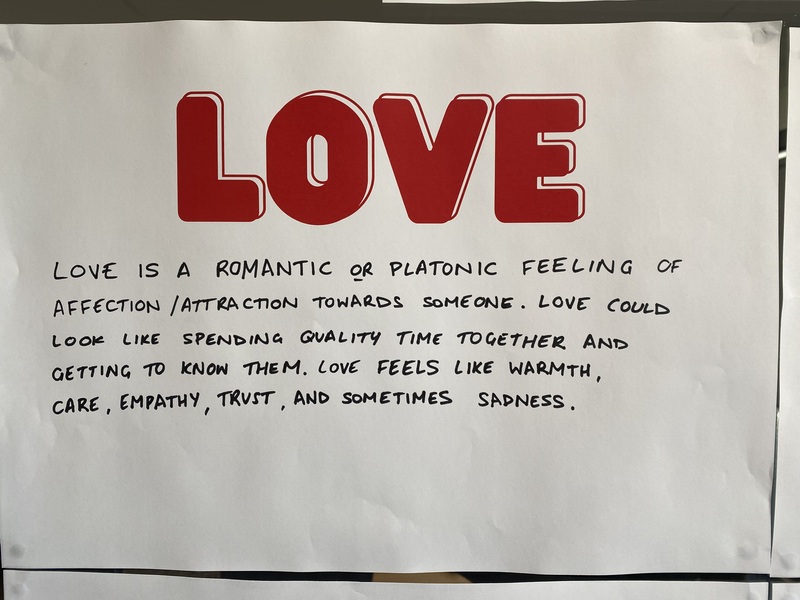 LOVE
LOVE IS A ROMANTIC OR PLATONIC FEELING OF
AFFECTION / ATTRACTION TOWARDS SOMEONE. LOVE COULD
LOOK LIKE SPENDING QUALITY TIME TOGETHER AND
GETTING TO KNOW THEM. LOVE FEELS LIKE WARMTH,
CARE, EMPATHY, TRUST, AND SOMETIMES SADNESS.